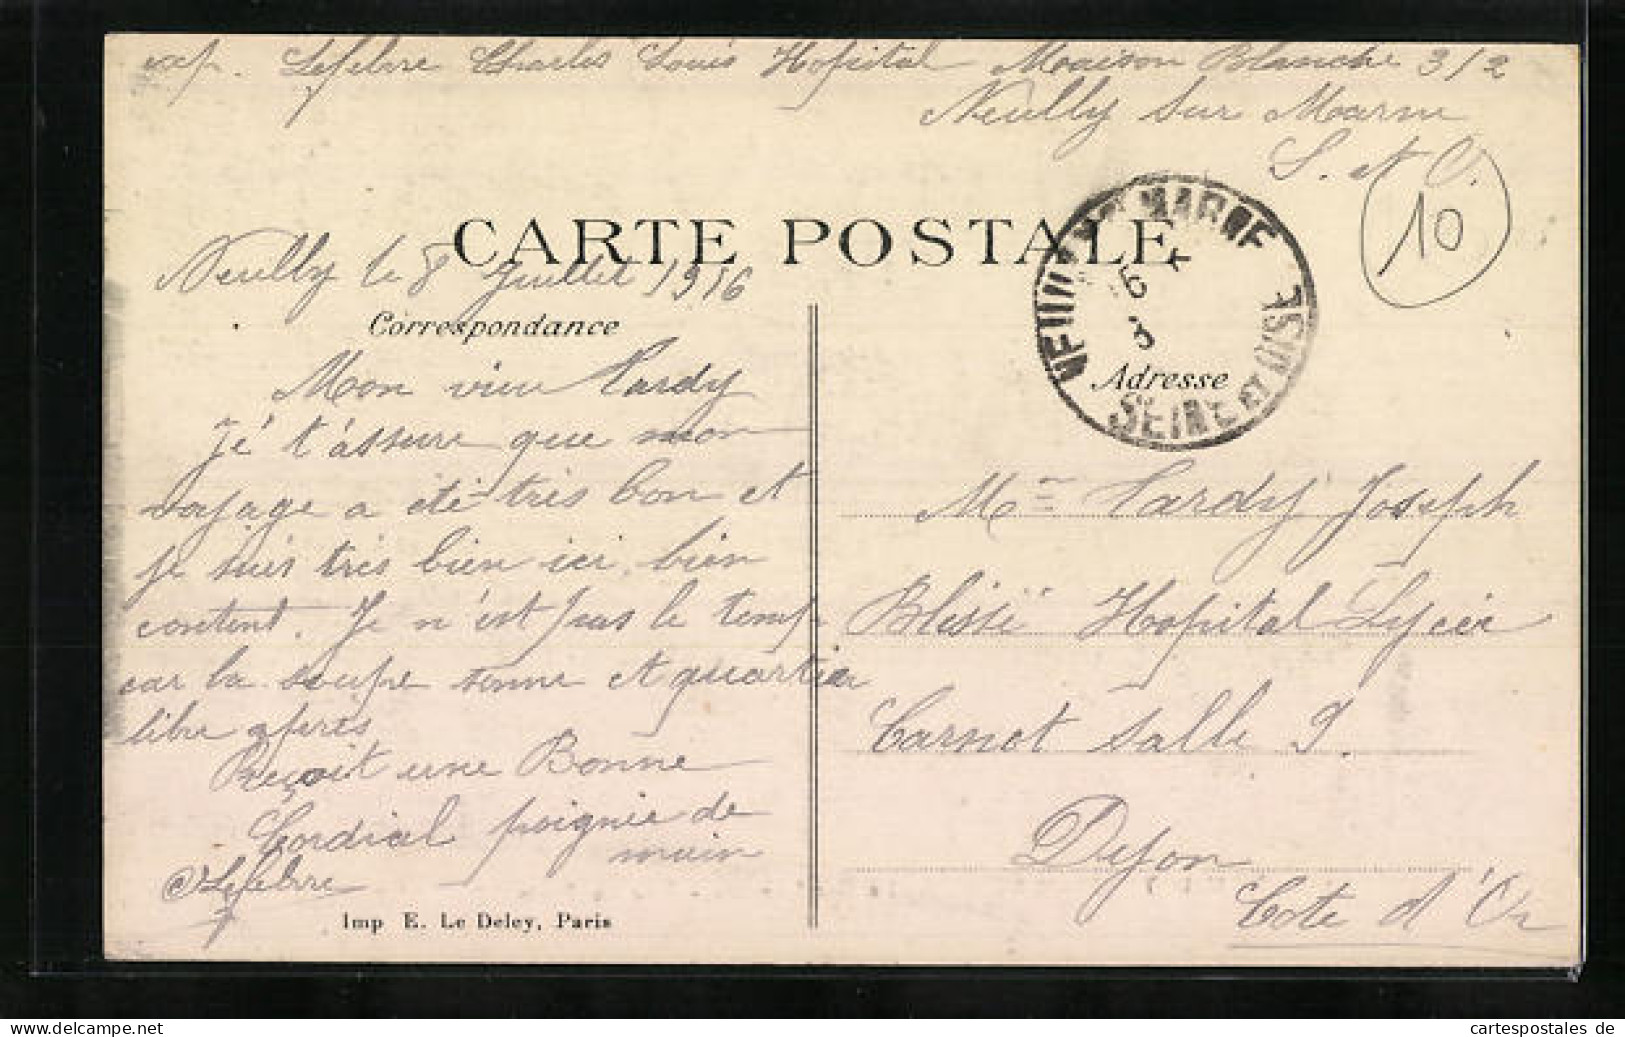 exp. Lefebre Charles Louis Hopital Maison Blanche 3/2
Neuilly sur Marne
S. et O.
10
CARTE POSTALE
Neuilly le 8 Juillet 1916
Correspondance
Adresse
SEINE ET OISE
Mon vieu Hardy
Je t'assure que mon
voyage a été très bon et
je suis très bien ici, bien
content. Je n'est pas le temp
car la soupe sonne et quartier
libre apres
Reçoit une Bonne
Cordial poignie de
main
Lefebre
Mr Hardy Joseph
Blessé Hopital Lycée
Carnot salle 9.
Dijon
Cote d'Or
Imp E. Le Deley, Paris
www.cartespostales.de
cartespostales de